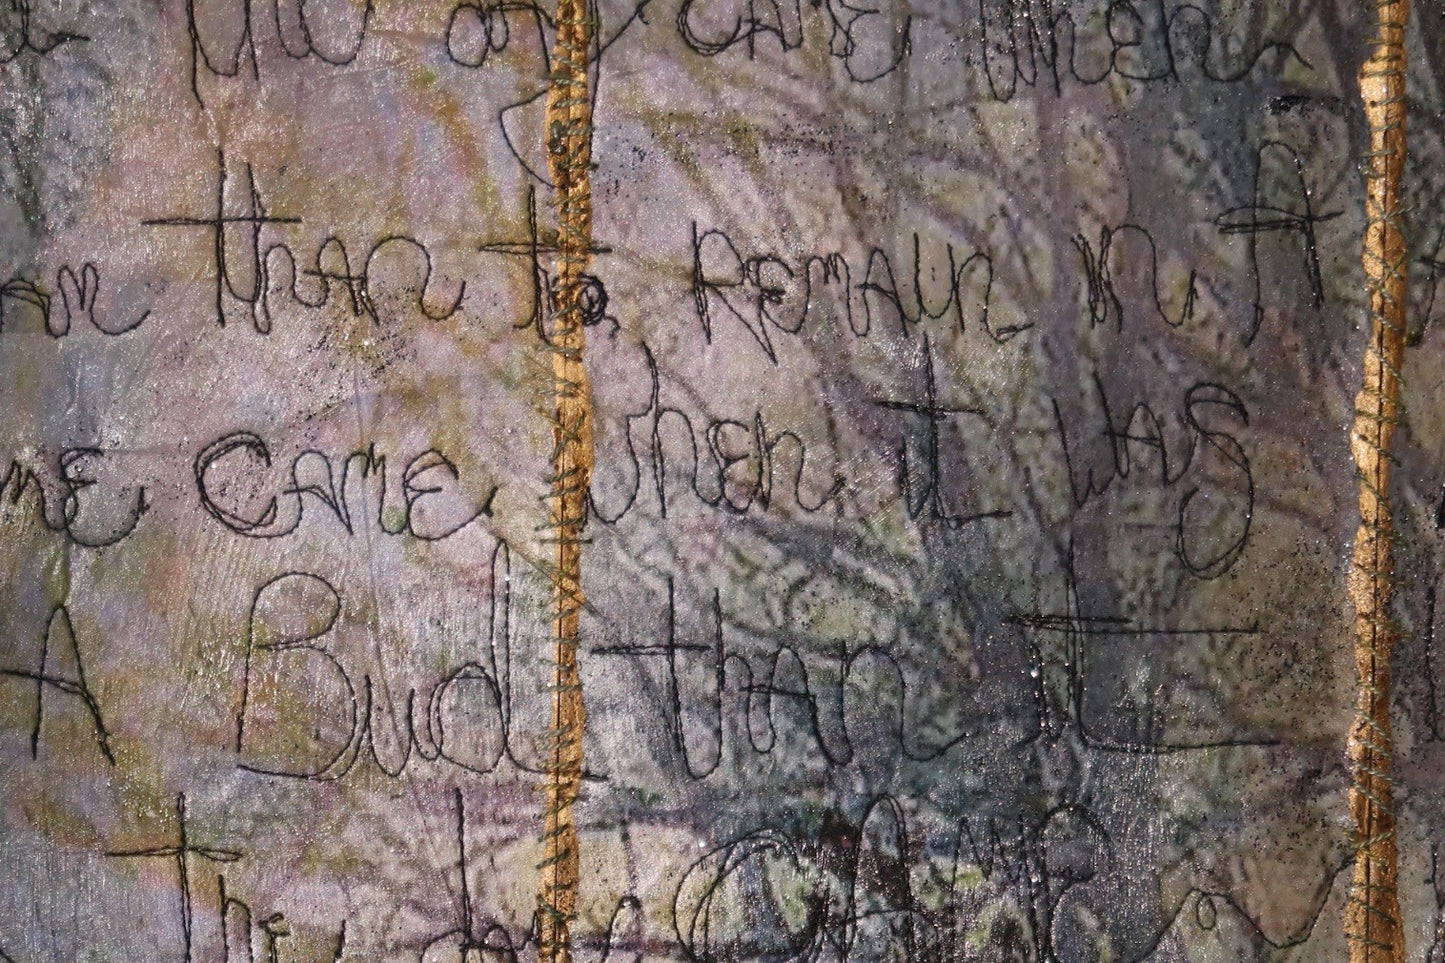 day came when
than to remain in A
me came when it was
A Bud than it
the day came